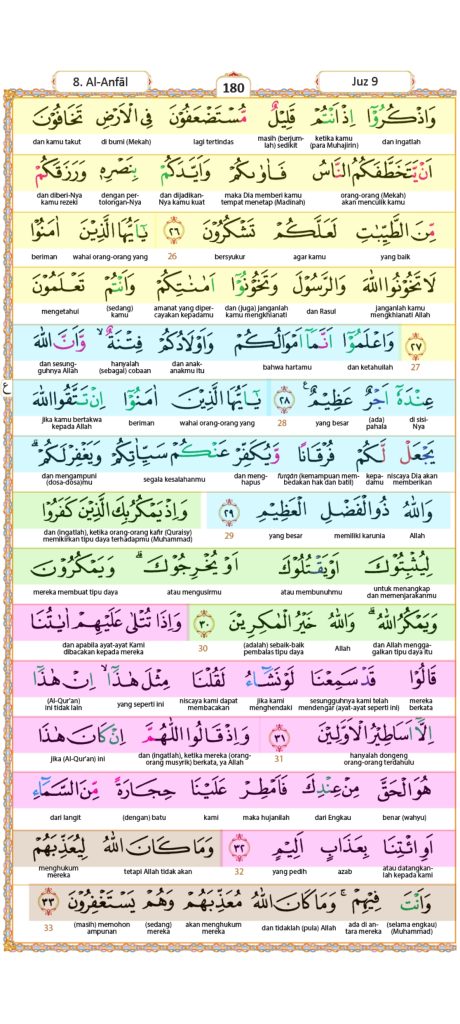 8. Al-Anfāl
180
Juz 9
وَاذْكُرُوْٓا اِذْ اَنْتُمْ قَلِيْلٌ مُّسْتَضْعَفُوْنَ فِى الْاَرْضِ تَخَافُوْنَ
dan ingatlah ketika kamu (para Muhajirin) masih (berjumlah) sedikit lagi tertindas di bumi (Mekah) dan kamu takut
اَنْ يَّتَخَطَّفَكُمُ النَّاسُ فَاٰوٰىكُمْ وَاَيَّدَكُمْ بِنَصْرِهٖ وَرَزَقَكُمْ
orang-orang (Mekah) akan menculik kamu maka Dia memberi kamu tempat menetap (Madinah) dan dijadikan-Nya kamu kuat dengan pertolongan-Nya dan diberi-Nya kamu rezeki
مِّنَ الطَّيِّبٰتِ لَعَلَّكُمْ تَشْكُرُوْنَ ٢٦ يٰٓاَيُّهَا الَّذِيْنَ اٰمَنُوْا
yang baik agar kamu bersyukur 26 wahai orang-orang yang beriman
لَا تَخُوْنُوا اللّٰهَ وَالرَّسُوْلَ وَتَخُوْنُوْٓا اَمٰنٰتِكُمْ وَاَنْتُمْ تَعْلَمُوْنَ
janganlah kamu mengkhianati Allah dan Rasul dan (juga) janganlah kamu mengkhianati amanat yang dipercayakan kepadamu (sedang) kamu mengetahui
٢٧ وَاعْلَمُوْٓا اَنَّمَآ اَمْوَالُكُمْ وَاَوْلَادُكُمْ فِتْنَةٌ ۙ وَّاَنَّ اللّٰهَ
27 dan ketahuilah bahwa hartamu dan anak-anakmu itu hanyalah (sebagai) cobaan dan sesungguhnya Allah
ع
عِنْدَهٗٓ اَجْرٌ عَظِيْمٌ ࣖ ٢٨ يٰٓاَيُّهَا الَّذِيْنَ اٰمَنُوْٓا اِنْ تَتَّقُوا اللّٰهَ
di sisi-Nya (ada) pahala yang besar 28 wahai orang-orang yang beriman jika kamu bertakwa kepada Allah
يَجْعَلْ لَّكُمْ فُرْقَانًا وَّيُكَفِّرْ عَنْكُمْ سَيِّاٰتِكُمْ وَيَغْفِرْ لَكُمْ ۗ
niscaya Dia akan memberikan kepadamu furqān (kemampuan membedakan hak dan batil) dan menghapus segala kesalahanmu dan mengampuni (dosa-dosa)mu
وَاللّٰهُ ذُو الْفَضْلِ الْعَظِيْمِ ٢٩ وَاِذْ يَمْكُرُ بِكَ الَّذِيْنَ كَفَرُوْا
Allah memiliki karunia yang besar 29 dan (ingatlah), ketika orang-orang kafir (Quraisy) memikirkan tipu daya terhadapmu (Muhammad)
لِيُثْبِتُوْكَ اَوْ يَقْتُلُوْكَ اَوْ يُخْرِجُوْكَ ۗ وَيَمْكُرُوْنَ
untuk menangkap dan memenjarakanmu atau membunuhmu atau mengusirmu mereka membuat tipu daya
وَيَمْكُرُ اللّٰهُ ۗ وَاللّٰهُ خَيْرُ الْمٰكِرِيْنَ ٣٠ وَاِذَا تُتْلٰى عَلَيْهِمْ اٰيٰتُنَا
dan Allah menggagalkan tipu daya itu Allah (adalah) sebaik-baik pembalas tipu daya 30 dan apabila ayat-ayat Kami dibacakan kepada mereka
قَالُوْا قَدْ سَمِعْنَا لَوْ نَشَاۤءُ لَقُلْنَا مِثْلَ هٰذَآ ۙ اِنْ هٰذَآ
mereka berkata sesungguhnya kami telah mendengar (ayat-ayat seperti ini) jika kami menghendaki niscaya kami dapat membacakan yang seperti ini (Al-Qur'an) ini tidak lain
اِلَّآ اَسَاطِيْرُ الْاَوَّلِيْنَ ٣١ وَاِذْ قَالُوا اللّٰهُمَّ اِنْ كَانَ هٰذَا
hanyalah dongeng orang-orang terdahulu 31 dan (ingatlah), ketika mereka (orang-orang musyrik) berkata, ya Allah jika (Al-Qur'an) ini
هُوَ الْحَقَّ مِنْ عِنْدِكَ فَاَمْطِرْ عَلَيْنَا حِجَارَةً مِّنَ السَّمَاۤءِ
benar (wahyu) dari Engkau maka hujanilah kami (dengan) batu dari langit
اَوِ ائْتِنَا بِعَذَابٍ اَلِيْمٍ ٣٢ وَمَا كَانَ اللّٰهُ لِيُعَذِّبَهُمْ
atau datangkanlah kepada kami azab yang pedih 32 tetapi Allah tidak akan menghukum mereka
وَاَنْتَ فِيْهِمْ ۚ وَمَا كَانَ اللّٰهُ مُعَذِّبَهُمْ وَهُمْ يَسْتَغْفِرُوْنَ ٣٣
(selama engkau) (Muhammad) ada di antara mereka dan tidaklah (pula) Allah akan menghukum mereka (sedang) mereka (masih) memohon ampunan 33